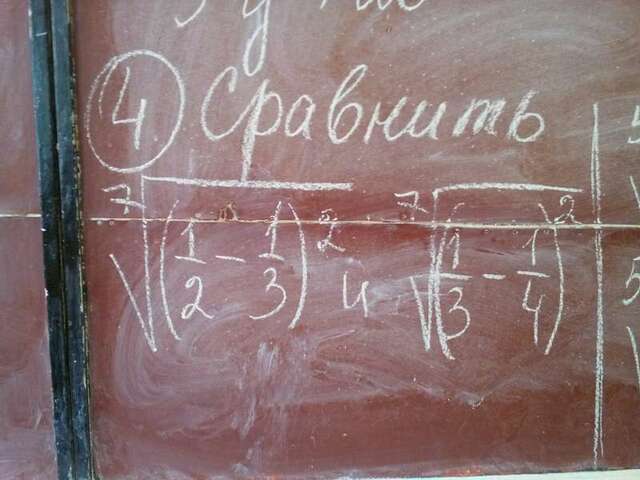 4 Сравнить
⁷√(1/2 - 1/3)² и ⁷√(1/3 - 1/4)²
5